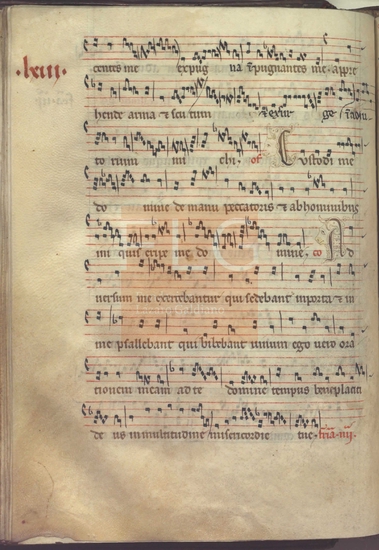 .lxiii.
centes me expug na impugnantes me. appre
hende arma et scutum et exsur ge in adiu
to rium mi chi. of Custodi me
do mine de manu peccatoris et ab hominibus
ini quis eripe me do mine. co Ad
uersum me exercebantur qui sedebant in porta et in
me psallebant qui bibebant uinum ego uero ora
tionem meam ad te domine tempus beneplaciti
de us in multitudine misericordie tue. fria. iiii.